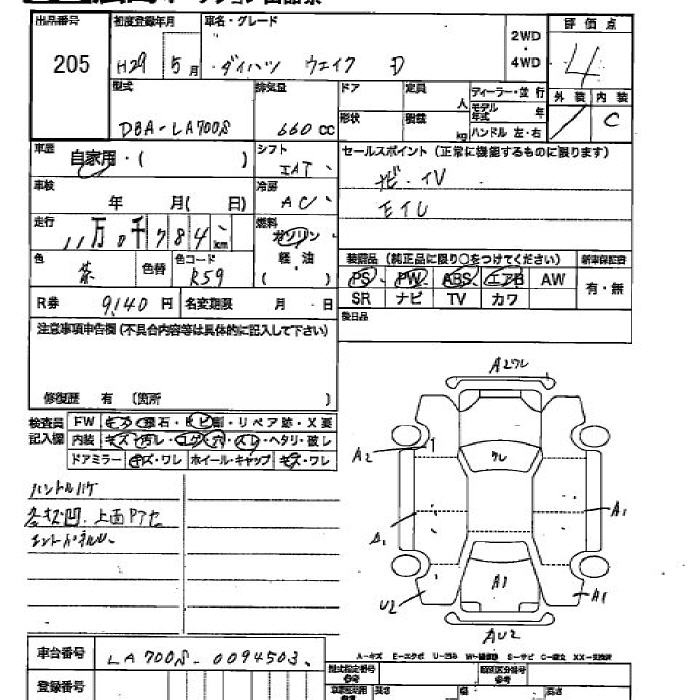 出品番号 初度登録年月 車名・グレード 評価点
205 H29 5月 ダイハツ ウェイク D 2WD・4WD 4
型式 排気量 ドア 定員 人 ディーラー・並行 外装 内装
DBA-LA700S 660cc 形状 積載 kg モデル年式 年 ハンドル 左・右 C
車歴 自家用・( ) シフト IAT セールスポイント(正常に機能するものに限ります)
車検 年 月( 日) 冷房 AC ナビ・TV
走行 11万0千784km 燃料 ガソリン
色 茶 色替 色コード R59 軽・油 ( ) 装備品(純正品に限り○をつけてください) 新車保証書
PS PW ABS エアB AW 有・無
R券 9,140円 名変期限 月・日 SR ナビ TV カワ
注意事項申告欄(不具合内容等は具体的に記入して下さい) 後日品
修復歴 有 (箇所 )
検査員記入欄 FW キズ・飛石・ヒビ割・リペア跡・X要
内装 キズ・汚レ・コゲ・穴・スレ・ヘタリ・破レ
ドアミラー キズ・ワレ ホイール・キャップ キズ・ワレ
A2ワレ
A2 ワレ
ハンドルハゲ
A1
上面
A1 U2 A1
AU2
車台番号 LA700S-0094503
A-キズ E-エクボ U-凹み W-補修跡 S-サビ C-腐食 XX-交換済
登録番号 型式指定番号 参考 類別区分番号 参考
長さ 幅 高さ